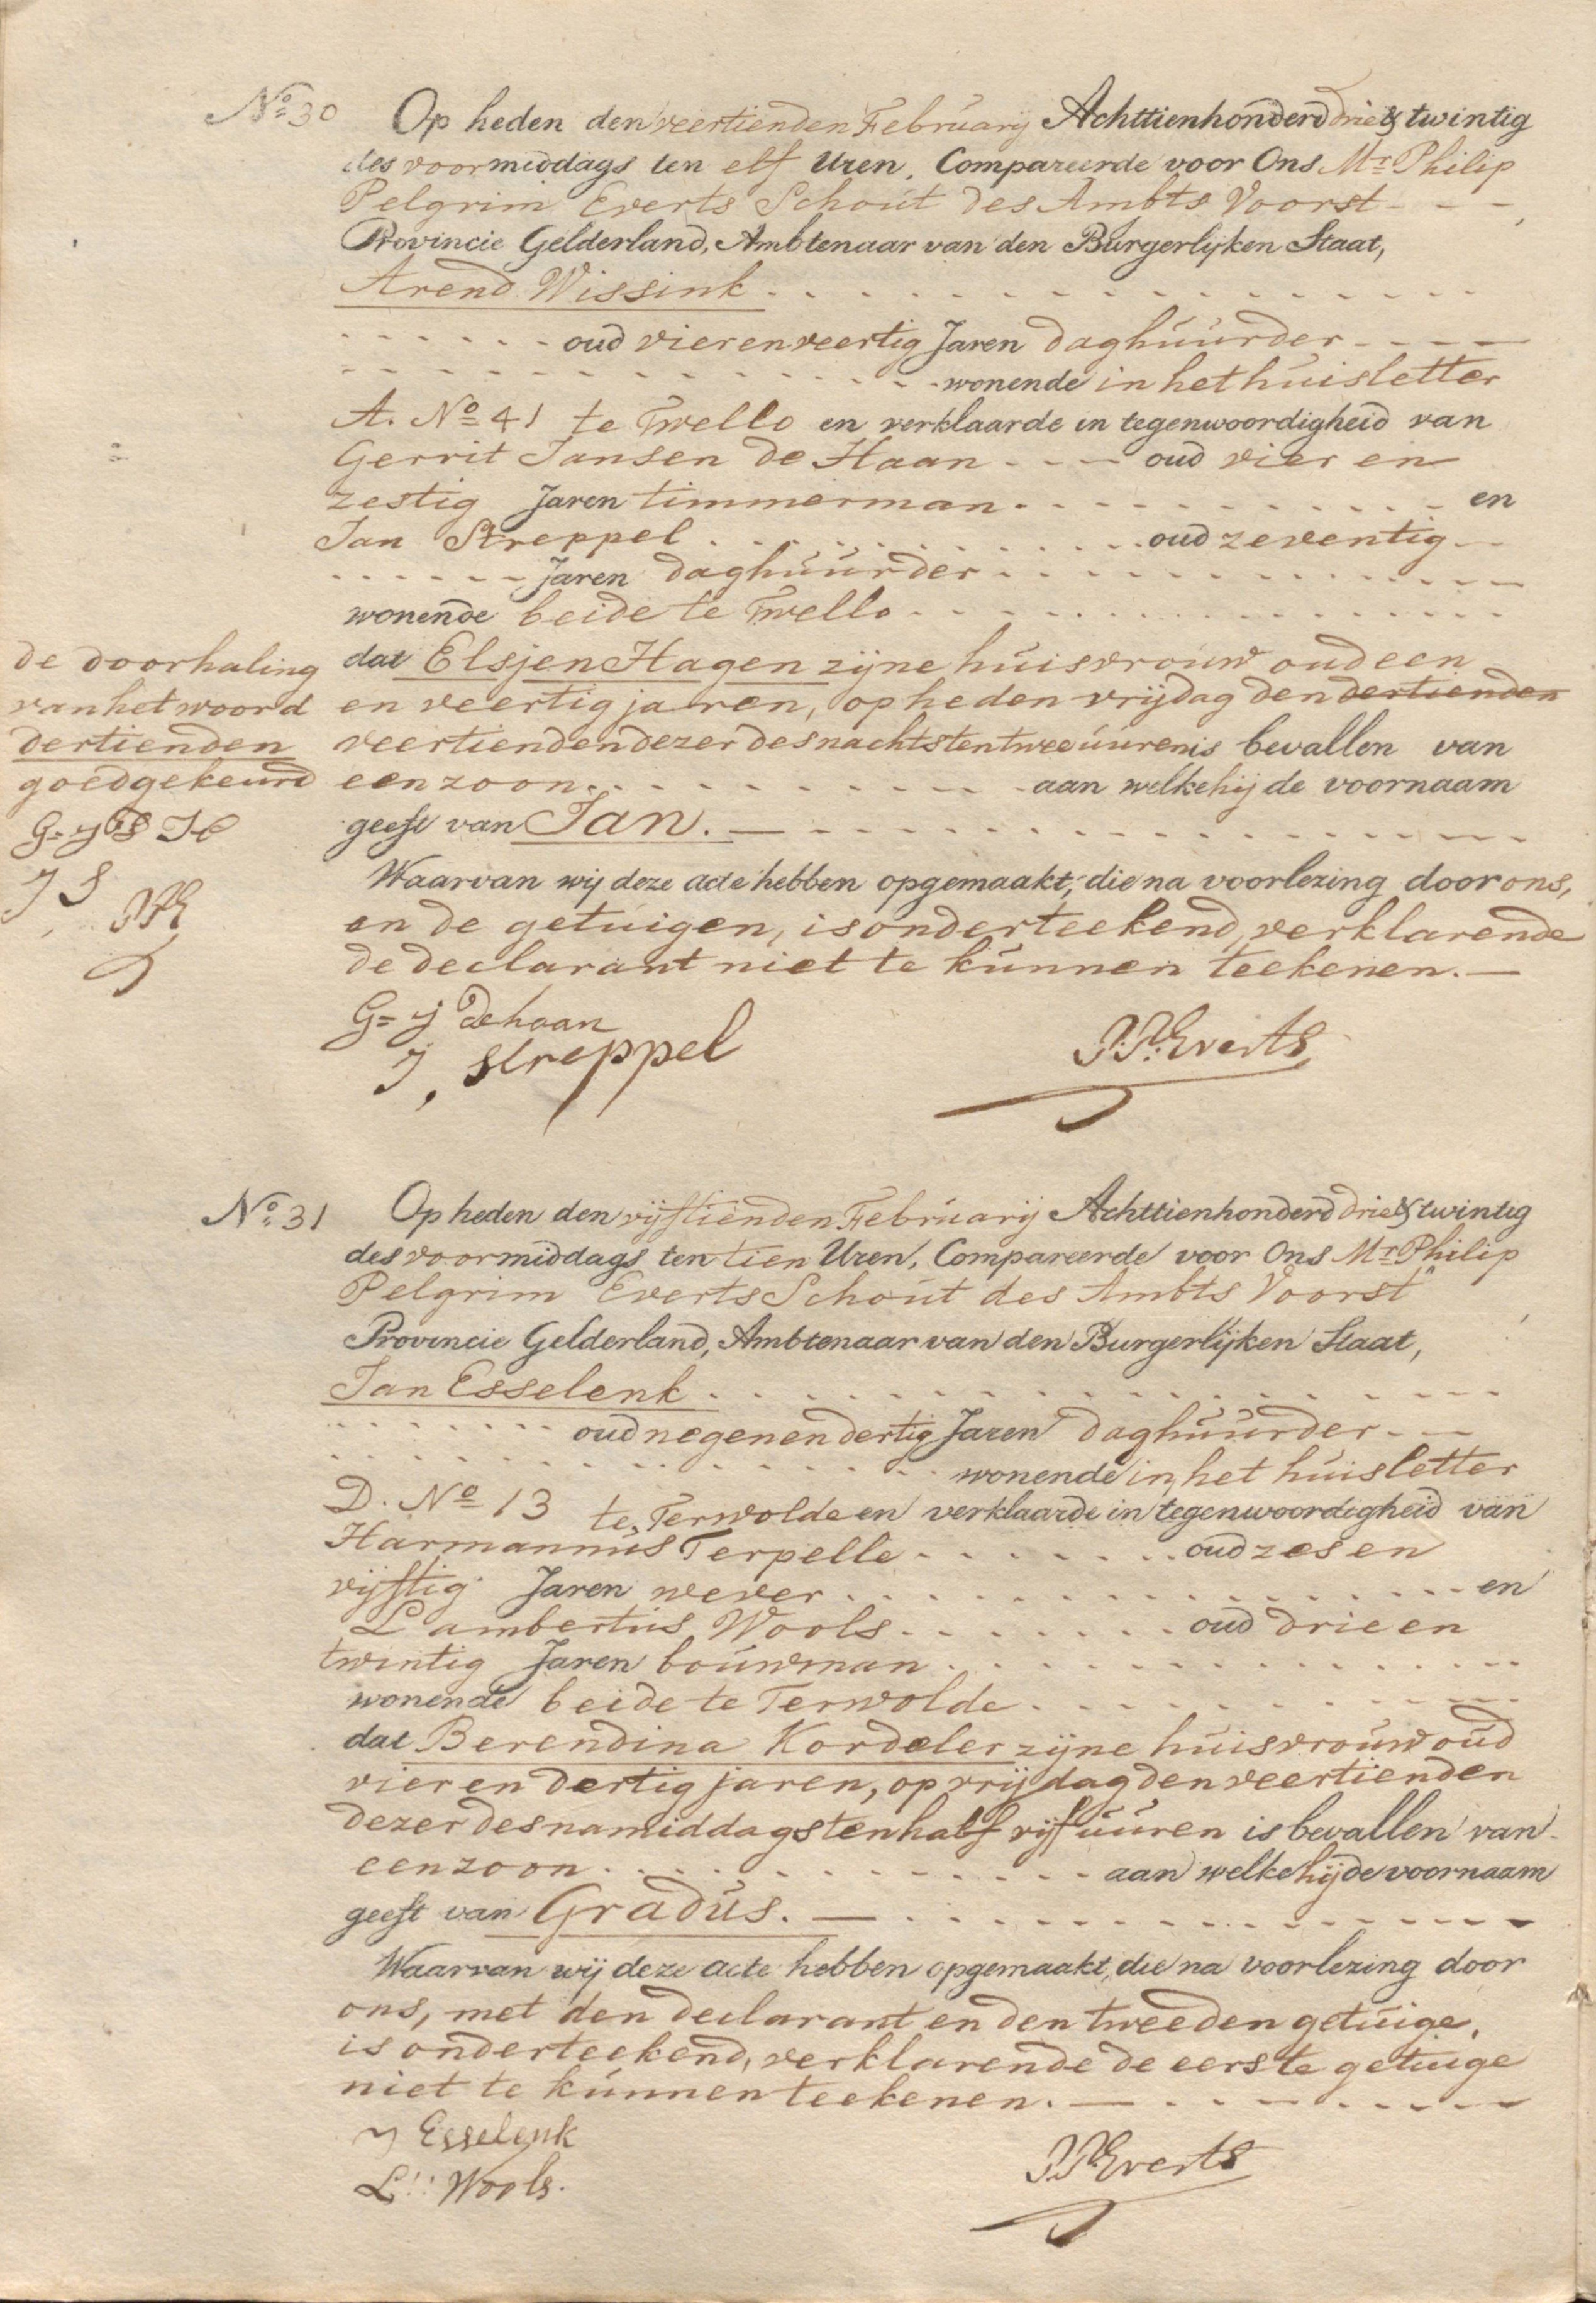 No. 30
Op heden den veertienden February Achttienhonderd drie & twintig
des voormiddags ten elf Uren, Compareerde voor Ons Mr Philip
Pelgrim Everts Schout des Ambts Voorst
Provincie Gelderland, Ambtenaar van den Burgerlijken Staat,
Arend Wissink
oud vierenveertig Jaren daghuurder
wonende in het huis letter
A. No 41 te Twello en verklaarde in tegenwoordigheid van
Gerrit Jansen de Haan oud vier en
zestig Jaren timmerman en
Jan Streppel oud zeventig
Jaren daghuurder
wonende beide te Twello
dat Elsjen Hagen zijne huisvrouw oud een
en veertig jaren, op heden vrijdag den dertienden
veertienden dezer des nachts ten twee uuren is bevallen van
een zoon aan welke hij de voornaam
geeft van Jan.
Waarvan wij deze acte hebben opgemaakt, die na voorlezing door ons,
en de getuigen, is onderteekend, verklarende
de declarant niet te kunnen teekenen.
de doorhaling
van het woord
dertienden
goedgekeurd
G=J d H
J S
PPE
G=J de haan
J, streppel
P.P. Everts
No. 31
Op heden den vijftienden February Achttienhonderd drie & twintig
des voormiddags ten tien Uren, Compareerde voor Ons Mr Philip
Pelgrim Everts Schout des Ambts Voorst
Provincie Gelderland, Ambtenaar van den Burgerlijken Staat,
Jan Esselenk
oud negenendertig Jaren daghuurder
wonende in het huis letter
D. No 13 te Terwolde en verklaarde in tegenwoordigheid van
Harmannus Terpelle oud zes en
vijftig Jaren wever en
Lambertus Wools oud drie en
twintig Jaren bouwman
wonende beide te Terwolde
dat Berendina Kordeler zijne huisvrouw oud
vier en dertig jaren, op vrijdag den veertienden
dezer des namiddags ten half vijf uuren is bevallen van
een zoon aan welke hij de voornaam
geeft van Gradus.
Waarvan wij deze acte hebben opgemaakt, die na voorlezing door
ons, met den declarant en den tweeden getuige,
is onderteekend, verklarende de eerste getuige
niet te kunnen teekenen.
J Esselenk
L:: Wools.
P.P. Everts